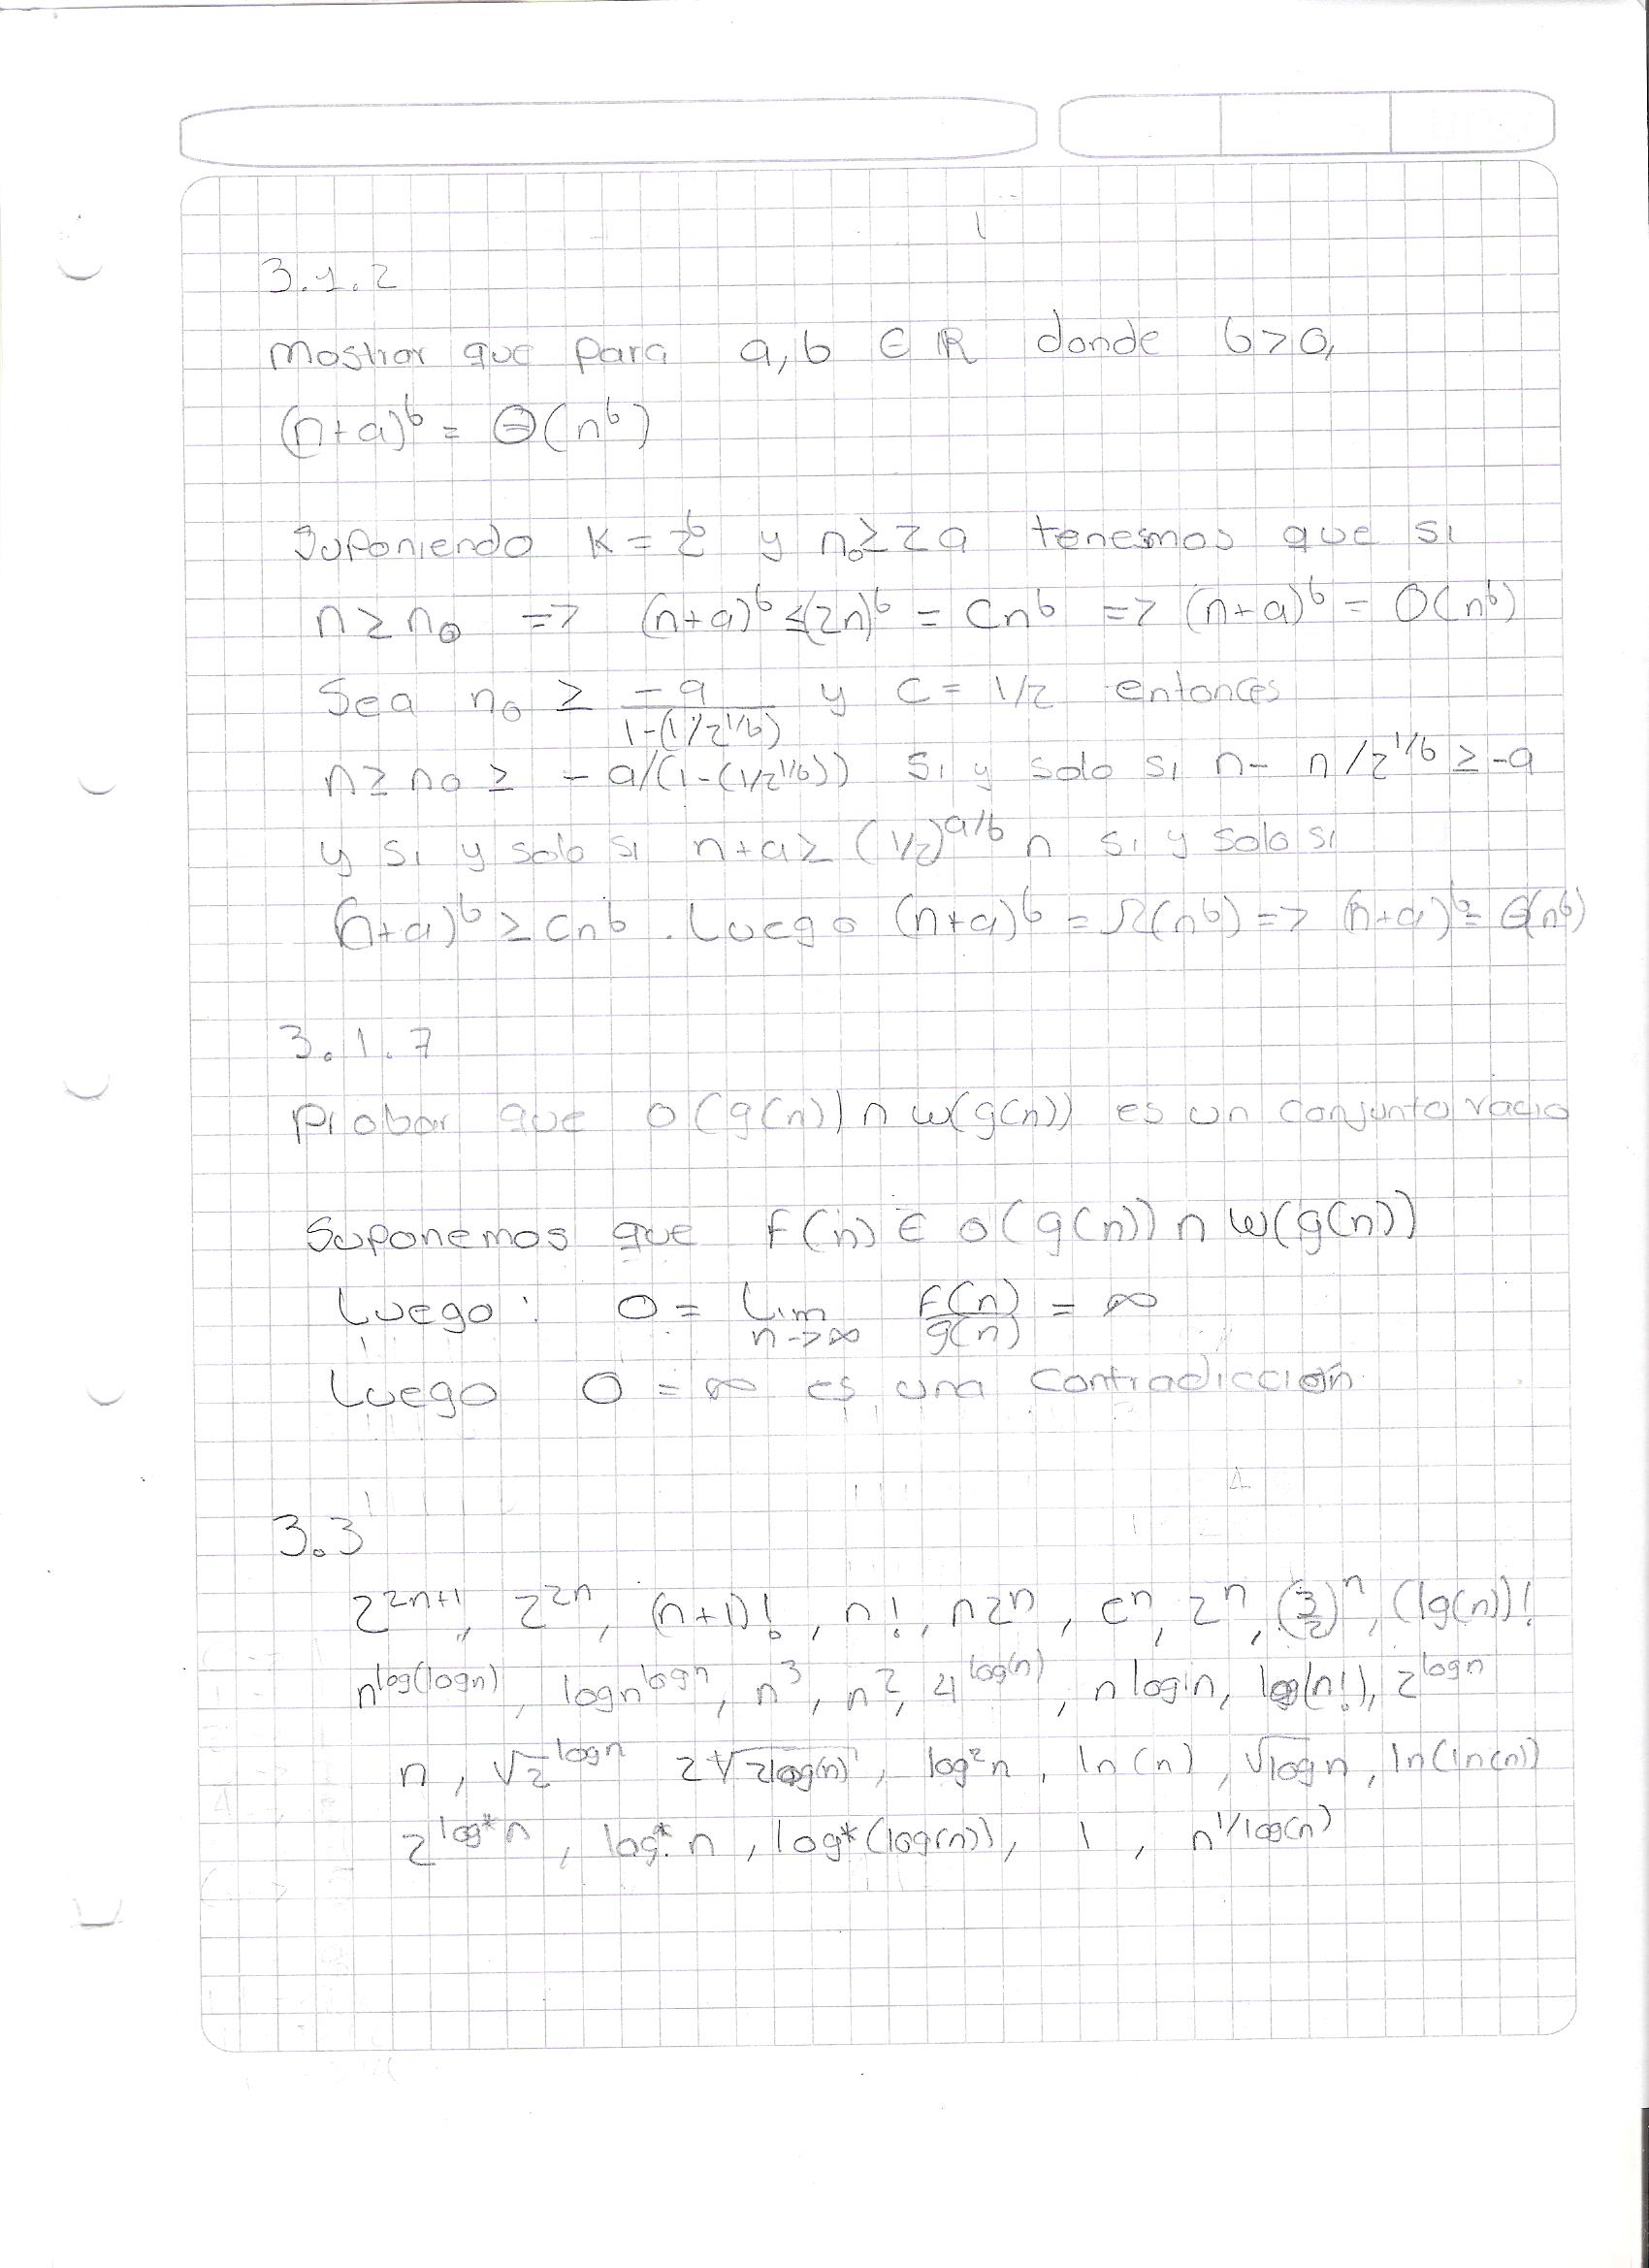 3.1.2
Mostrar que para a, b ∈ ℝ donde b>0,
(n+a)^b = Θ(n^b)
Suponiendo K = 2^b y n₀ ≥ 2a tenesmos que si
n ≥ n₀ => (n+a)^b ≤ (2n)^b = cn^b => (n+a)^b = O(n^b)
Sea n₀ ≥ -a/(1-(1/2^(1/b))) y c = 1/2 entonces
n ≥ n₀ ≥ -a/(1-(1/2^(1/b))) si y solo si n - n/2^(1/b) ≥ -a
y si y solo si n+a ≥ (1/2)^(a/b) n si y solo si
(n+a)^b ≥ cn^b . Luego (n+a)^b = Ω(n^b) => (n+a)^b = Θ(n^b)
3.1.7
Probar que o(g(n)) ∩ ω(g(n)) es un conjunto vacio
Suponemos que F(n) ∈ o(g(n)) ∩ ω(g(n))
Luego: 0 = Lim n->∞ F(n)/g(n) = ∞
Luego 0 = ∞ es una contradicción
3.3
2^(2n+1), 2^(2n), (n+1)!, n!, n2^n, e^n, 2^n, (3/2)^n, (lg(n))!
n^(log(logn)), logn^(logn), n^3, n^2, 4^(log(n)), n logn, log(n!), 2^(logn)
n, √2^(logn) 2^(√(2log(n))), log²n, ln(n), √logn, ln(ln(n))
2^(log*n), log*n, log*(log(n)), 1, n^(1/log(n))